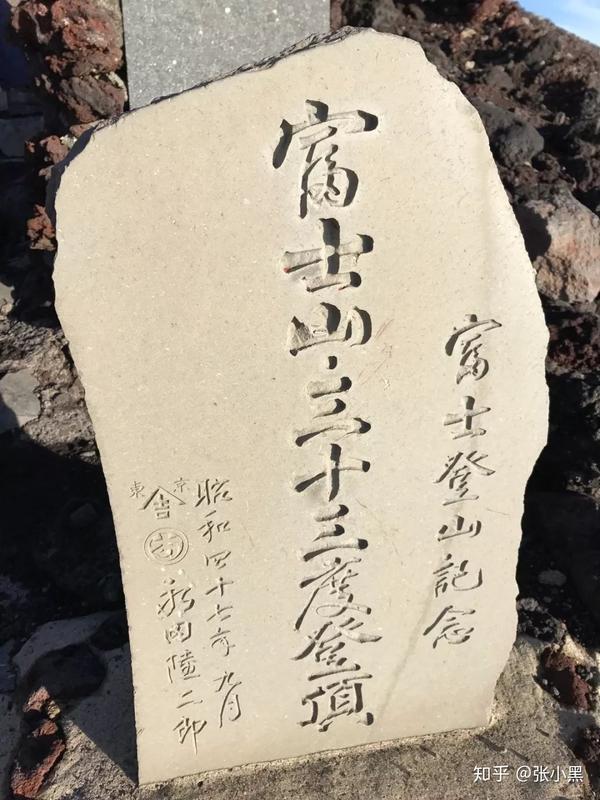 富士登山記念
富士山・三十三度登頂
昭和四十七年九月
東京
二郎
知乎 @张小黑